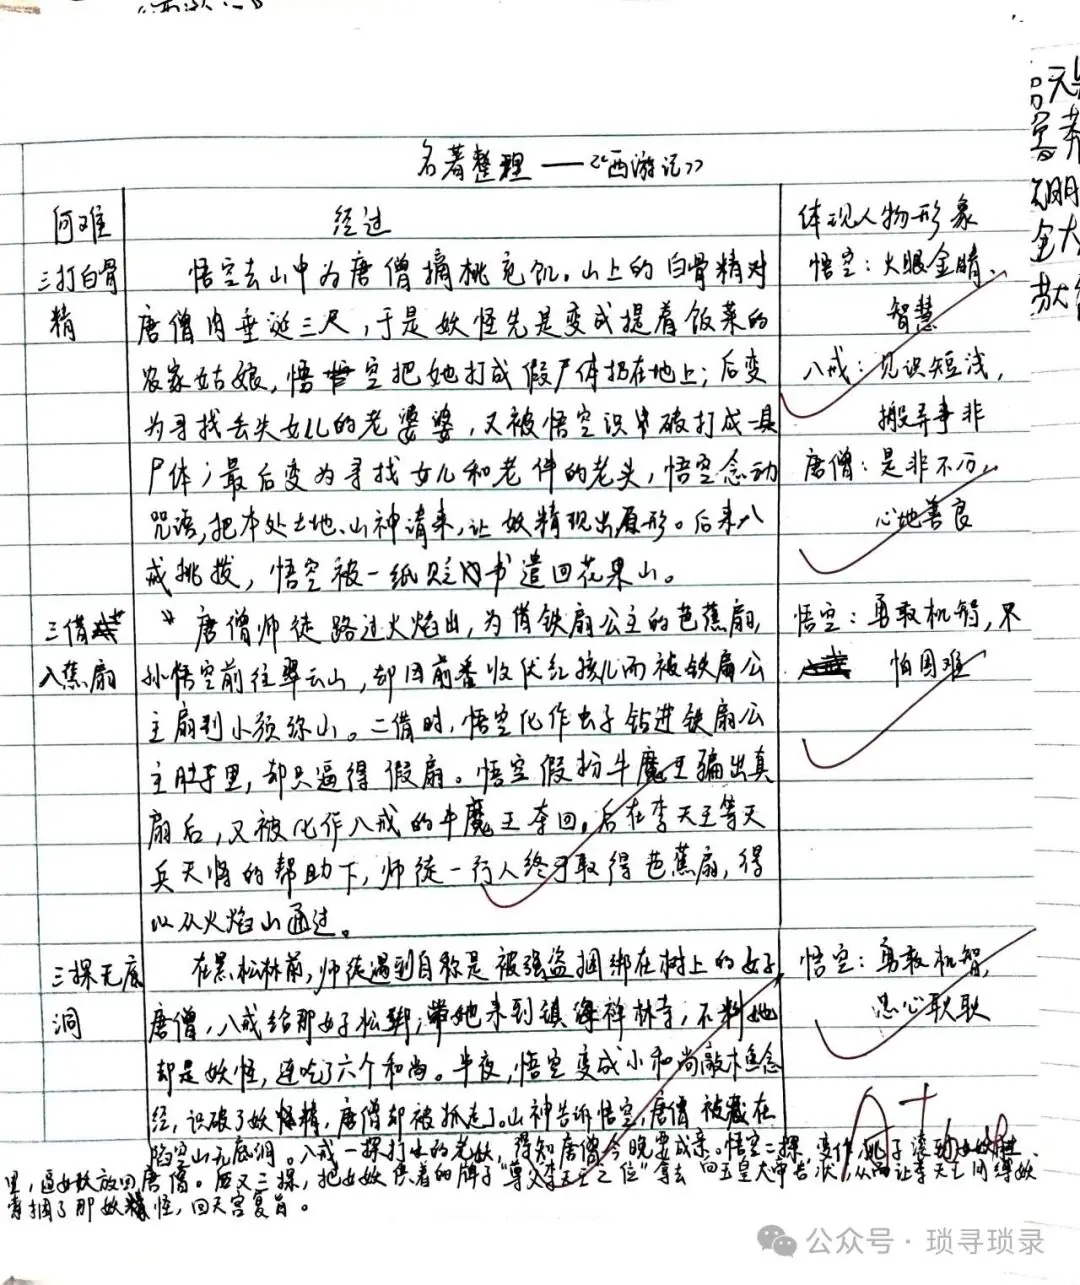 《西游记》
名著整理——《西游记》
何难
经过
体现人物形象
三打白骨
精
悟空去山中为唐僧摘桃充饥。山上的白骨精对
唐僧肉垂涎三尺，于是妖怪先是变成提着饭菜的
农家姑娘，悟空把她打成假尸体扔在地上；后变
为寻找丢失女儿的老婆婆，又被悟空识破打成一具
尸体；最后变为寻找女儿和老伴的老头，悟空念动
咒语，把本处土地、山神请来，让妖精现出原形。后来八
戒挑拨，悟空被一纸贬书遣回花果山。
悟空：火眼金睛、
智慧
八戒：见识短浅，
搬弄事非
唐僧：是非不分，
心地善良
三借
八蕉扇
唐僧师徒路过火焰山，为借铁扇公主的芭蕉扇，
孙悟空前往翠云山，却因前番收伏红孩儿而被铁扇公
主扇到小须弥山。二借时，悟空化作虫子钻进铁扇公
主肚子里，却只逼得假扇。悟空假扮牛魔王骗出真
扇后，又被化作八戒的牛魔王夺回。后在李天王等天
兵天将的帮助下，师徒一行人终于取得芭蕉扇，得
以从火焰山通过。
悟空：勇敢机智，不
怕困难
三探无底
洞
在黑松林前，师徒遇到自称是被强盗捆绑在树上的女子
唐僧，八戒给那女子松绑，带她来到镇海禅林寺，不料她
却是妖怪，连吃了六个和尚。半夜，悟空变成小和尚敲木鱼念
经，识破了妖精，唐僧却被抓走了。山神告诉悟空，唐僧被藏在
陷空山无底洞。八戒一探打水的老妖，得知唐僧今晚要成亲。悟空二探，变作桃子滚到女妖肚
里，逼女妖放回唐僧。后又三探，把女妖供着的牌子“尊父李天王之位”拿去回玉皇大帝告状，从而让李天王闭缚妖
索捆了那妖怪，回天宫复旨。
悟空：勇敢机智，
忠心耿耿
A+
公众号·琐寻琐录